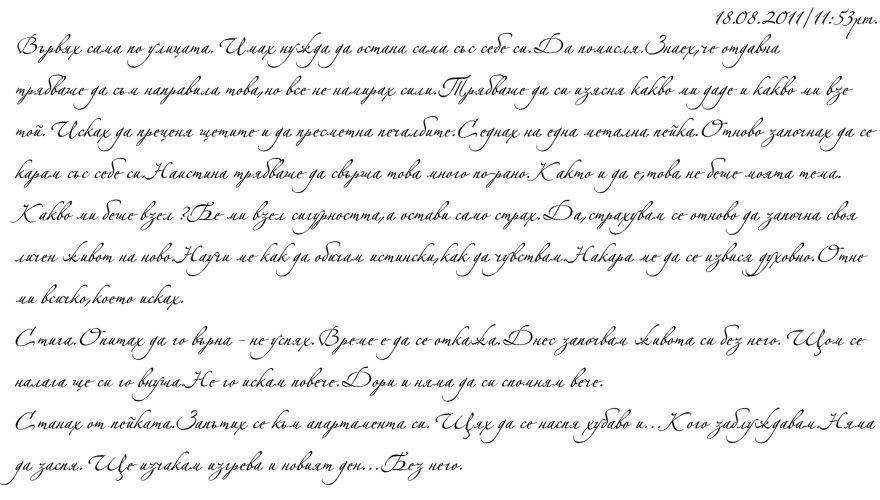 18.08.2011/11:53pm.
Вървях сама по улицата. Имах нужда да остана сама със себе си.Да помисля.Знаех,че отдавна
трябваше да съм направила това,но все не намирах сили.Трябваше да си изясня какво ми даде и какво ми взе
той. Исках да преценя щетите и да пресметна печалбите.Седнах на една метална пейка.Отново започнах да се
карам със себе си.Наистина трябваше да свърша това много по-рано.Както и да е,това не беше моята тема.
Какво ми беше взел ?Бе ми взел сигурността,а остави само страх.Да,страхувам се отново да започна своя
личен живот на ново.Научи ме как да обичам истински,как да чувствам.Накара ме да се извися духовно.Отне
ми всичко,което исках.
Стига.Опитах да го върна - не успях. Време е да се откажа.Днес започвам живота си без него. Щом се
налага ще си го внуша.Не го искам повече.Дори и няма да си спомням вече.
Станах от пейката.Запътих се към апартамента си. Щях да се наспя хубаво и...Кого заблуждавам.Няма
да заспя. Ще изчакам изгрева и новият ден...Без него.